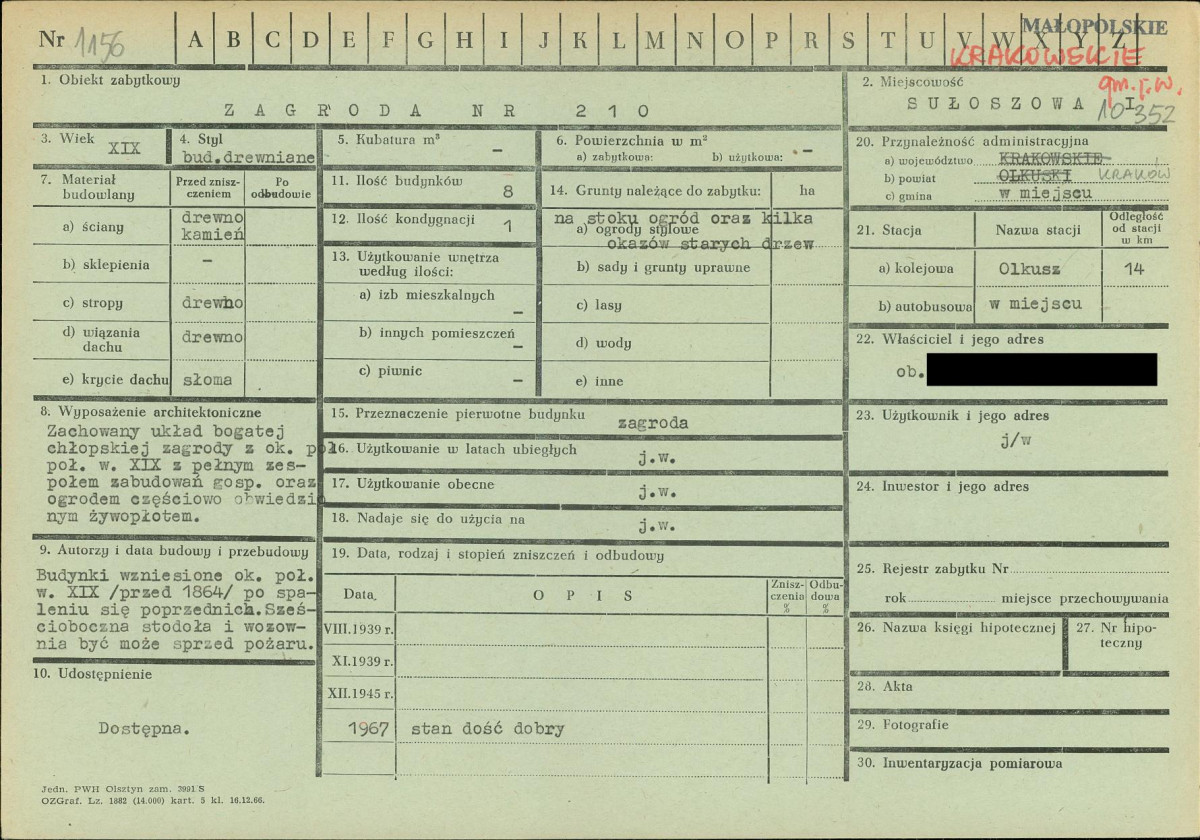 Nr 1156
A B C D E F G H I J K L M N O P R S T U V W X Y Z
MAŁOPOLSKIE
KRAKOWSKIE
gm. j.w.
10 352
1. Obiekt zabytkowy
ZAGRODA NR 210
2. Miejscowość
SUŁOSZOWA I
3. Wiek
XIX
4. Styl
bud.drewniane
5. Kubatura m³
-
6. Powierzchnia w m²
a) zabytkowa: b) użytkowa: -
20. Przynależność administracyjna
a) województwo KRAKOWSKIE
b) powiat OLKUSKI KRAKÓW
c) gmina w miejscu
7. Materiał budowlany
Przed zniszczeniem
Po odbudowie
a) ściany drewno
kamień
b) sklepienia -
c) stropy drewno
d) wiązania dachu drewno
e) krycie dachu słoma
11. Ilość budynków 8
12. Ilość kondygnacji 1
13. Użytkowanie wnętrza
według ilości:
a) izb mieszkalnych
-
b) innych pomieszczeń
-
c) piwnic
-
14. Grunty należące do zabytku: ha
na stoku ogród oraz kilka
a) ogrody stylowe
okazów starych drzew
b) sady i grunty uprawne
c) lasy
d) wody
e) inne
21. Stacja
Nazwa stacji
Odległość od stacji w km
a) kolejowa Olkusz 14
b) autobusowa w miejscu
22. Właściciel i jego adres
ob.
8. Wyposażenie architektoniczne
Zachowany układ bogatej
chłopskiej zagrody z ok. poł
poł. w. XIX z pełnym zes-
połem zabudowań gosp. oraz
ogrodem częściowo obwiedzio
nym żywopłotem.
15. Przeznaczenie pierwotne budynku
zagroda
16. Użytkowanie w latach ubiegłych
j.w.
17. Użytkowanie obecne
j.w.
18. Nadaje się do użycia na
j.w.
23. Użytkownik i jego adres
j/w
24. Inwestor i jego adres
9. Autorzy i data budowy i przebudowy
Budynki wzniesione ok. poł.
w. XIX /przed 1864/ po spa-
leniu się poprzednich.Sześ-
cioboczna stodoła i wozow-
nia być może sprzed pożaru.
19. Data, rodzaj i stopień zniszczeń i odbudowy
Data. OPIS Zniszczenia % Odbudowa %
VIII.1939 r.
XI.1939 r.
XII.1945 r.
1967 stan dość dobry
25. Rejestr zabytku Nr
rok miejsce przechowywania
26. Nazwa księgi hipotecznej
27. Nr hipoteczny
28. Akta
29. Fotografie
30. Inwentaryzacja pomiarowa
10. Udostępnienie
Dostępna.
Jedn. PWH Olsztyn zam. 3991 S
OZGraf. Lz. 1882 (14.000) kart. 5 kl. 16.12.66.